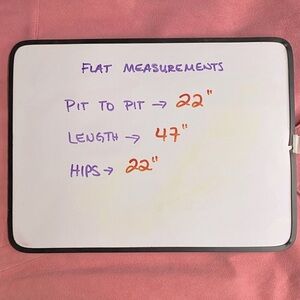 FLAT MEASUREMENTS
PIT TO PIT → 22"
LENGTH → 47"
HIPS → 22"